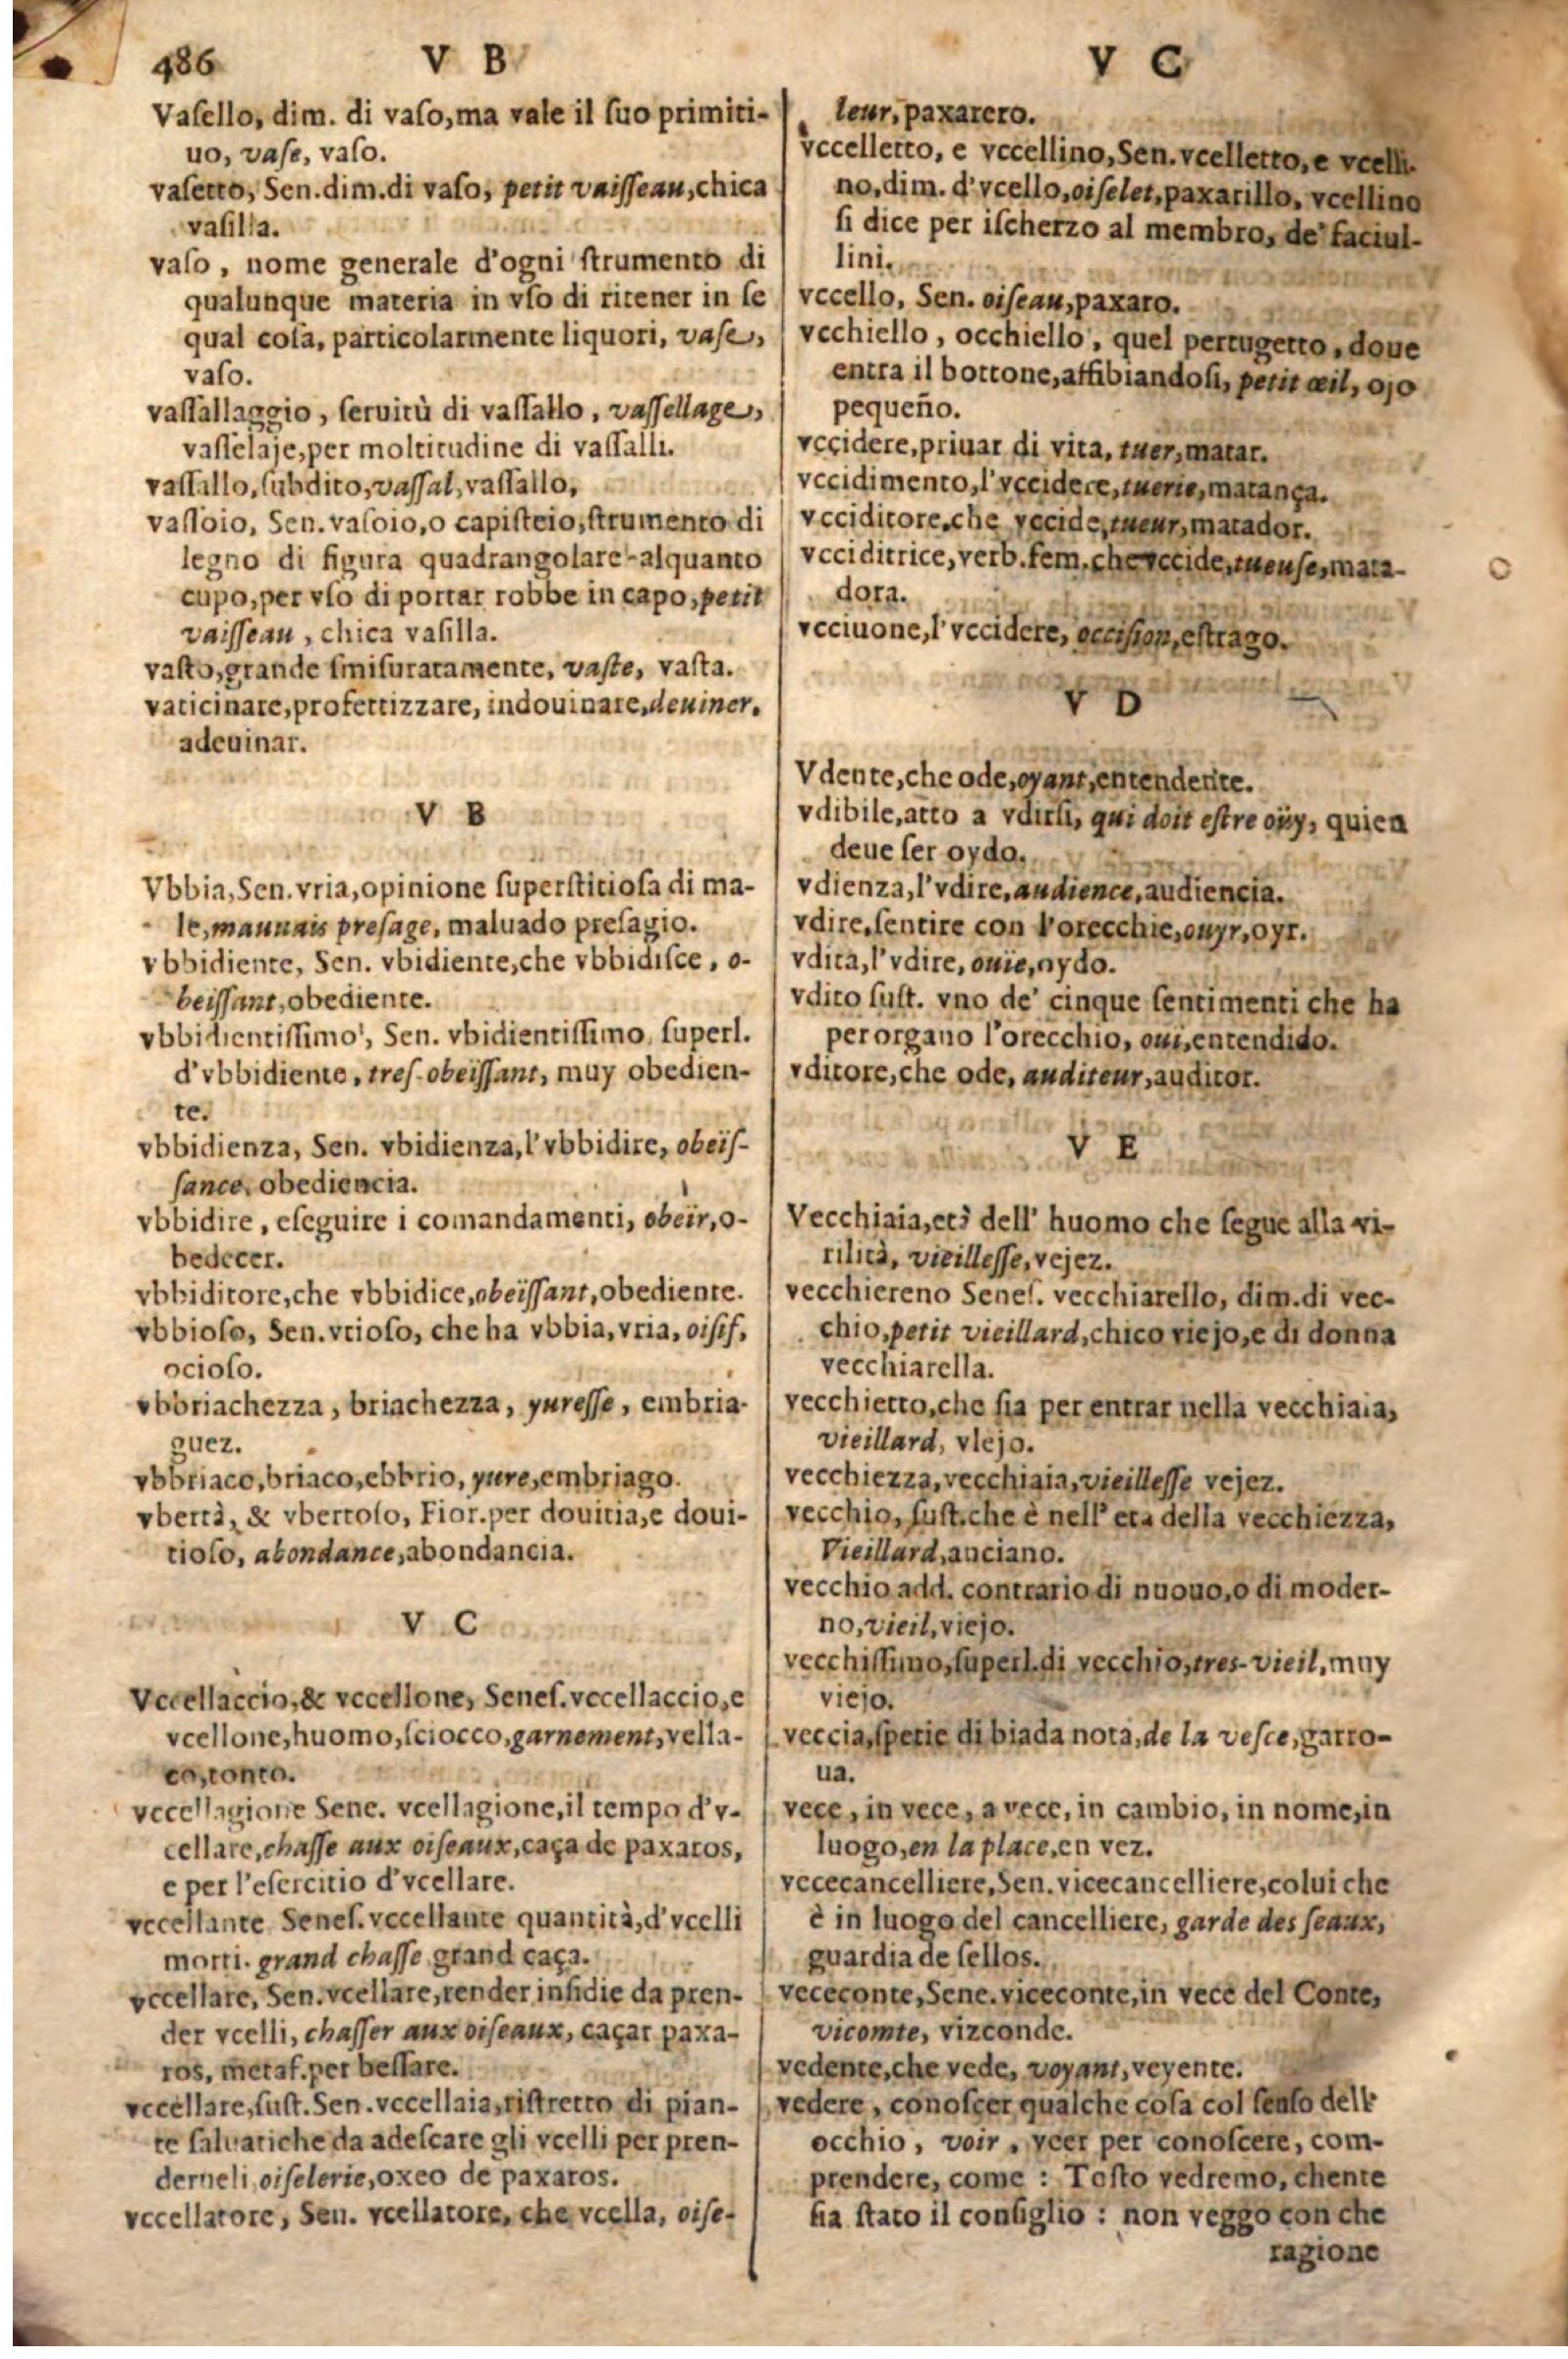 486 V B V C
Vaſello, dim. di vaſo, ma vale il ſuo primiti-
uo, vaſe, vaſo.
vaſetto, Sen. dim. di vaſo, petit vaiſſeau, chica
vaſilla.
vaſo, nome generale d'ogni ſtrumento di
qualunque materia in vſo di ritener in ſe
qual coſa, particolarmente liquori, vaſe,
vaſo.
vaſſallaggio, ſeruitù di vaſſallo, vaſſellage,
vaſſelaje, per moltitudine di vaſſalli.
vaſſallo, ſubdito, vaſſal, vaſſallo,
vaſſoio, Sen. vaſoio, o capiſteio, ſtrumento di
legno di figura quadrangolare alquanto
cupo, per vſo di portar robbe in capo, petit
vaiſſeau, chica vaſilla.
vaſto, grande ſmiſuratamente, vaſte, vaſta.
vaticinare, profettizzare, indouinare, deuiner,
adeuinar.
V B
Vbbia, Sen. vria, opinione ſuperſtitioſa di ma-
le, mauuais preſage, maluado preſagio.
vbbidiente, Sen. vbidiente, che vbbidiſce, o-
beiſſant, obediente.
vbbidientiſſimo, Sen. vbidientiſſimo, ſuperl.
d'vbbidiente, treſ-obeiſſant, muy obedien-
te.
vbbidienza, Sen. vbidienza, l'vbbidire, obeiſ-
ſance, obediencia.
vbbidire, eſeguire i comandamenti, obeïr, o-
bedecer.
vbbiditore, che vbbidice, obeïſſant, obediente.
vbbioſo, Sen. vrioſo, che ha vbbia, vria, oiſif,
ocioſo.
vbbriachezza, briachezza, yureſſe, embria-
guez.
vbbriaco, briaco, ebbrio, yure, embriago.
vbertà, & vbertoſo, Fior. per douitia, e doui-
tioſo, abondance, abondancia.
V C
Vccellaccio, & vccellone, Seneſ. vccellaccio, e
vcellone, huomo, ſciocco, garnement, vella-
co, tonto.
vccellagione Sene. vcellagione, il tempo d'v-
cellare, chaſſe aux oiſeaux, caça de paxaros,
e per l'eſercitio d'vcellare.
vccellante Seneſ. vccellante quantità, d'vcelli
morti. grand chaſſe grand caça.
vccellare, Sen. vcellare, tender inſidie da pren-
der vcelli, chaſſer aux oiſeaux, caçar paxa-
ros, metaf. per beffare.
vccellare, ſuſt. Sen. vccellaia, riſtretto di pian-
te ſaluatiche da adeſcare gli vcelli per pren-
derueli, oiſelerie, oxeo de paxaros.
vccellatore, Sen. vcellatore, che vcella, oiſe-
leur, paxarero.
vccelletto, e vccellino, Sen. vcelletto, e vcelli-
no, dim. d'vcello, oiſelet, paxarillo, vcellino
ſi dice per iſcherzo al membro, de' faciul-
lini.
vccello, Sen. oiſeau, paxaro.
vcchiello, occhiello, quel pertugetto, doue
entra il bottone, affibiandoſi, petit œil, ojo
pequeño.
vccidere, priuar di vita, tuer, matar.
vccidimento, l'vccidere, tuerie, matança.
vcciditore, che vccide, tueur, matador.
vcciditrice, verb. fem. che vccide, tueuſe, mata-
dora.
vcciuone, l'vccidere, occiſion, eſtrago.
V D
Vdente, che ode, oyant, entendente.
vdibile, atto a vdirſi, qui doit eſtre oüy, quien
deue ſer oydo.
vdienza, l'vdire, audience, audiencia.
vdire, ſentire con l'orecchie, ouyr, oyr.
vdita, l'vdire, ouïe, oydo.
vdito ſuſt. vno de' cinque ſentimenti che ha
per organo l'orecchio, oui, entendido.
vditore, che ode, auditeur, auditor.
V E
Vecchiaia, età dell' huomo che ſegue alla vi-
rilità, vieilleſſe, vejez.
vecchiereno Seneſ. vecchiarello, dim. di vec-
chio, petit vieillard, chico viejo, e di donna
vecchiarella.
vecchietto, che ſia per entrar nella vecchiaia,
vieillard, vlejo.
vecchiezza, vecchiaia, vieilleſſe vejez.
vecchio, ſuſt. che è nell' eta della vecchiezza,
Vieillard, anciano.
vecchio add. contrario di nuouo, o di moder-
no, vieil, viejo.
vecchiſſimo, ſuperl. di vecchio, tres-vieil, muy
viejo.
veccia, ſpetie di biada nota, de la veſce, garro-
ua.
vece, in vece, a vece, in cambio, in nome, in
luogo, en la place, en vez.
vececancelliere, Sen. vicecancelliere, colui che
è in luogo del cancelliere, garde des ſeaux,
guardia de ſellos.
vececonte, Sene. viceconte, in vece del Conte,
vicomte, vizconde.
vedente, che vede, voyant, veyente.
vedere, conoſcer qualche coſa col ſenſo dell'
occhio, voir, veer per conoſcere, com-
prendere, come : Toſto vedremo, chente
ſia ſtato il conſiglio : non veggo con che
ragione